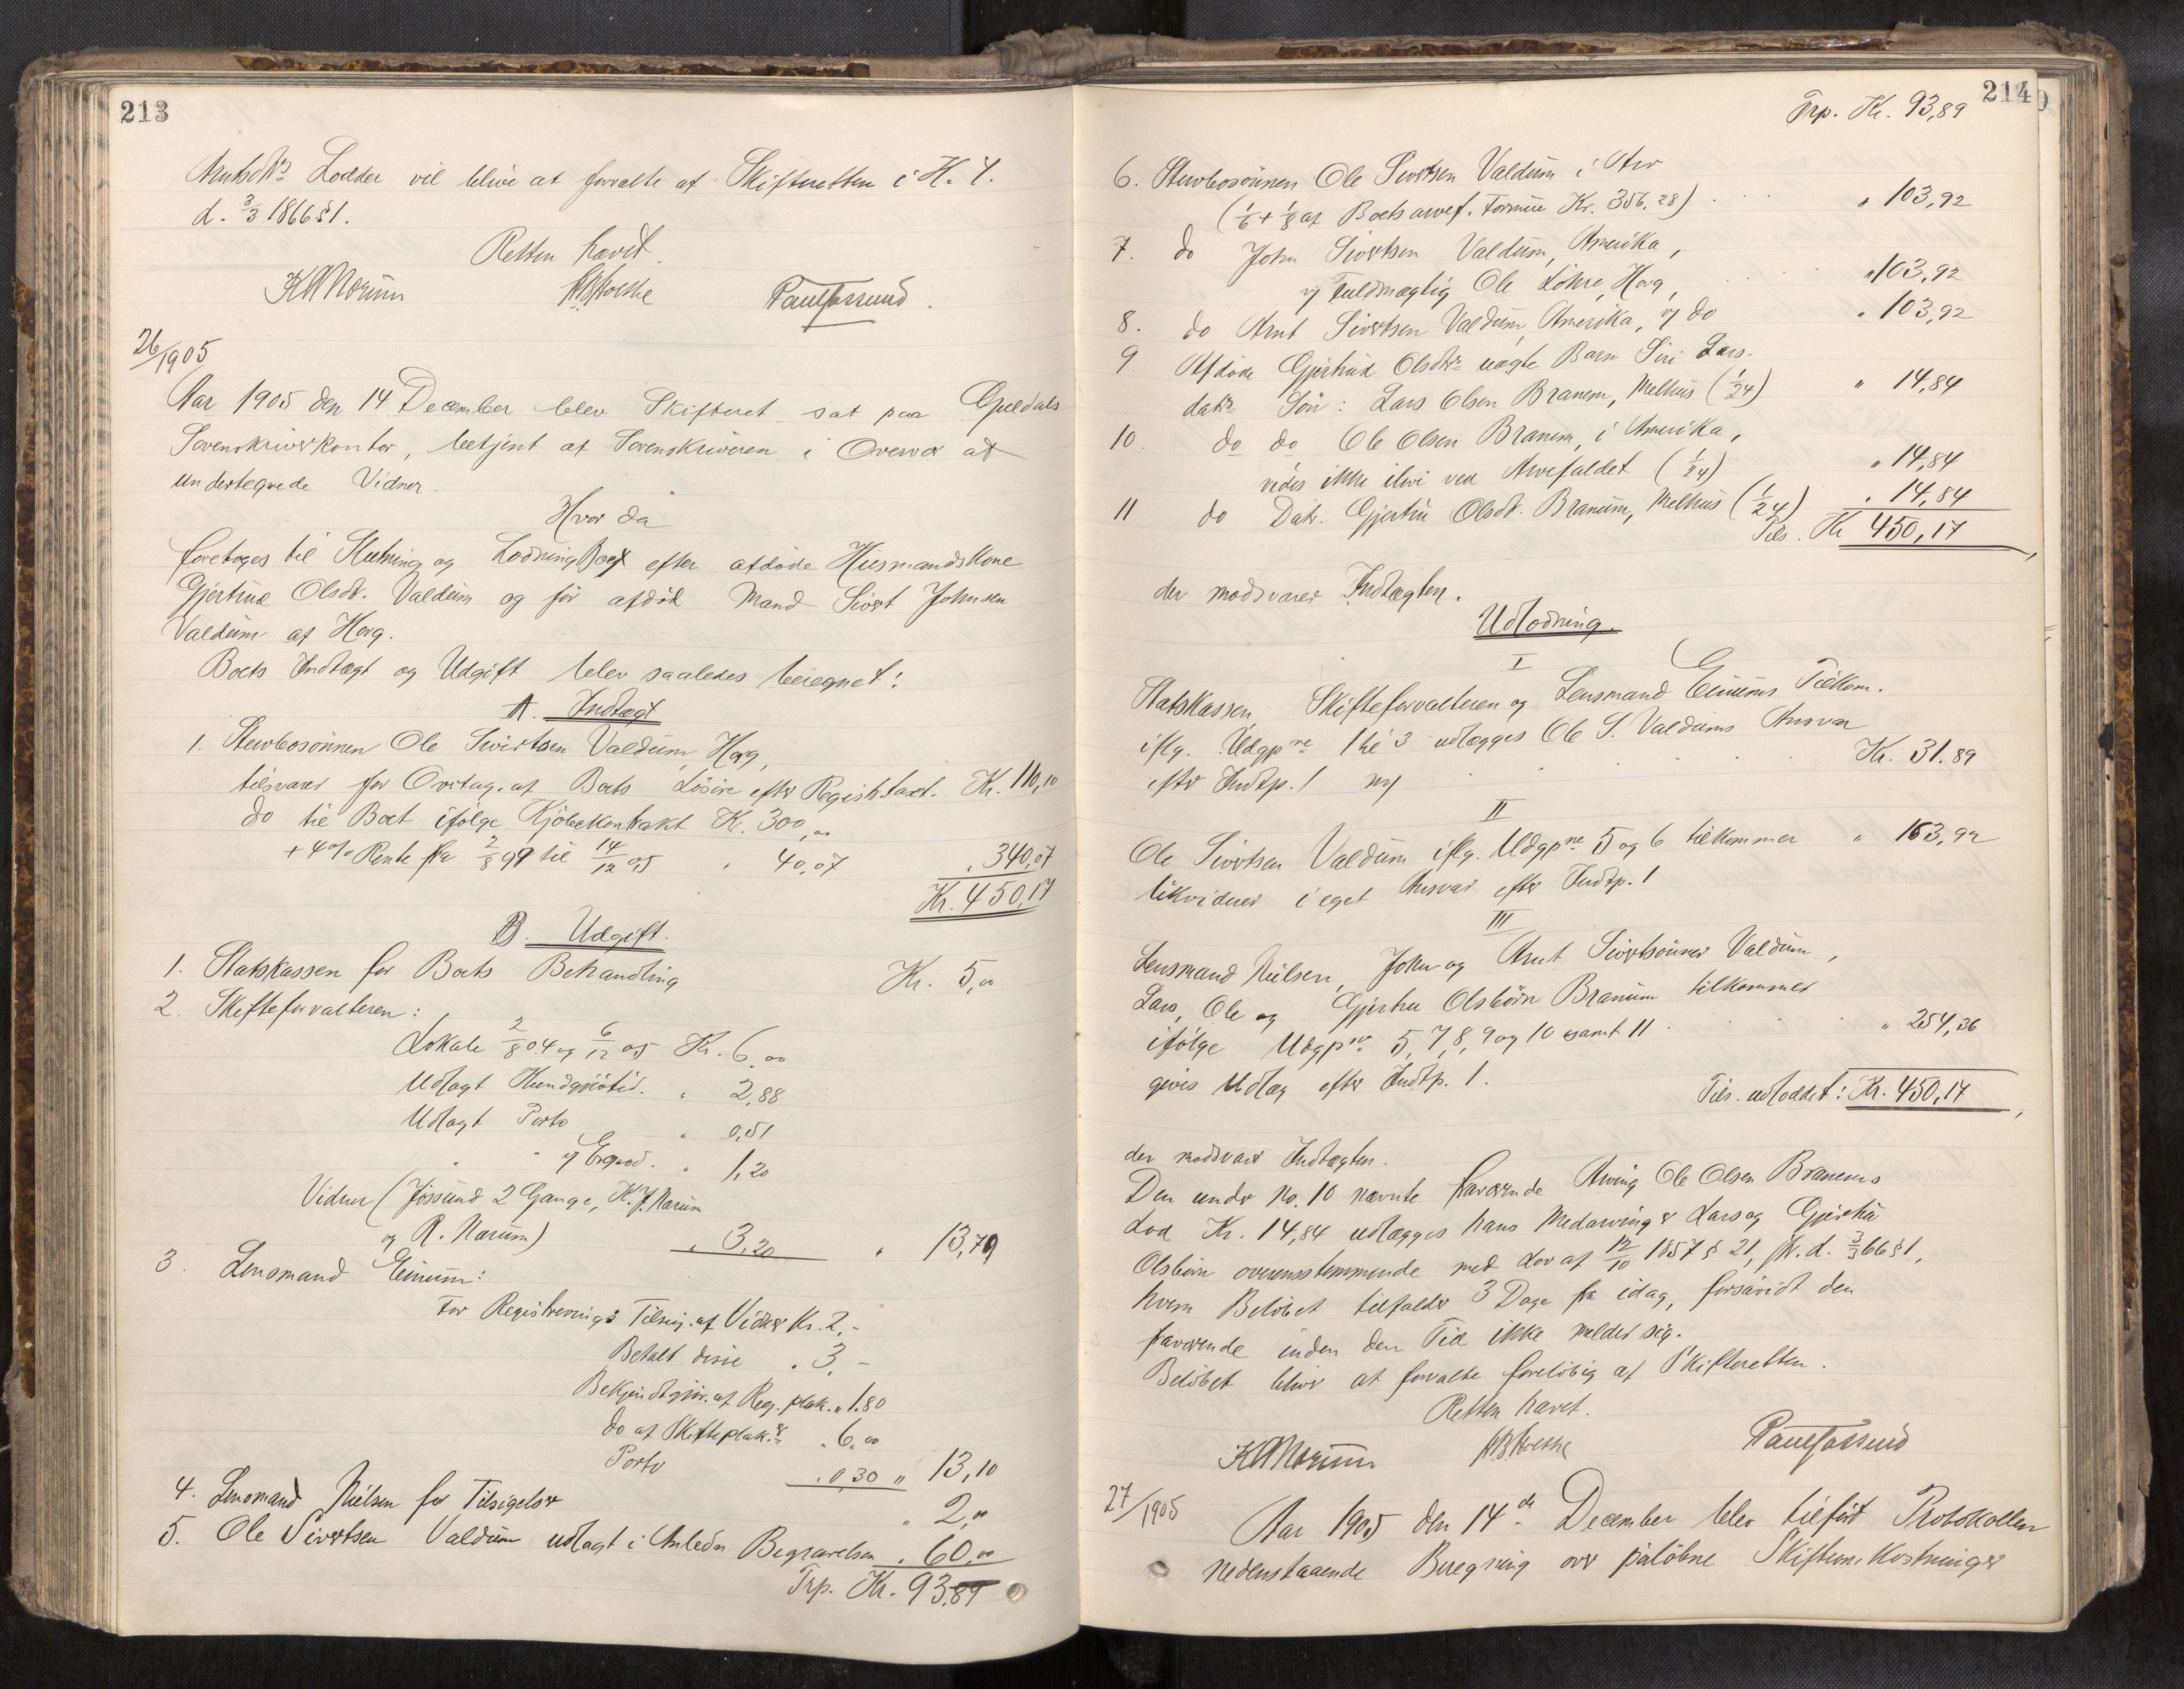 213
Arntsdtr. Lodder vil blive at forvalte af Skifteretten i H. t.
d. 3/3 1866 § 1.
Retten hævet.
Paul Jossund.
26/1905
Aar 1905 den 14 December blev Skifteret sat paa Guldals
Sorenskriverkontor, betjent af Sorenskriveren i Overvær af
undertegnede Vidner.
Hvor da
foretoges til Slutning og Lodning Boet efter afdøde Husmandskone
Gjertrud Olsdt. Valdum og før afdød Mand Sivert Johnsen
Valdum af Horg.
Boets Indtægt og Udgift blev saaledes beregnet:
A. Indtægt
1. Stervbosønnen Ole Sivertsen Valdum, Horg,
tilsvarer for Overtag. af Boets Løsøre efter Registr.taxt. Kr. 110,10
do til Boet ifølge Kjøbekontrakt Kr. 300,00
+ 4% Rente fra 2/8 99 til 14/12 05 " 40,07 " 340,07
Kr. 450,17
B. Udgift.
1. Statskassen for Boets Behandling Kr. 5,00
2. Skifteforvalteren:
Lokale 2/8 04 og 6/12 05 Kr. 6,00
Udlagt Kundgjøtid. " 2,88
Udlagt Porto " 0,51
" " og " 1,20
Vidner (Jossund 2 Gange, K. J. Narum
og R. Narum) " 3,20 " 13,79
3. Lensmand Einum:
For Registrering & Tilsig. af Vidner Kr. 2,-
Betalt disse " 3,-
Bekjendtgjør. af Reg. plak. " 1.80
do af Skifteplak. " 6,00
Porto " 0,30 " 13,10
4. Lensmand Nielsen for Tilsigelser " 2,00
5. Ole Sivertsen Valdum udlagt i Anledn. Begravelsen " 60,00
Trp. Kr. 93,89
214
Trp. Kr. 93,89
6. Stervbosønnen Ole Sivertsen Valdum i Arv
(1/6 + 1/8 af Boets arvef. Formue Kr. 356.28) " 103,92
7. do John Sivertsen Valdum, Amerika,
v/ Fuldmægtig Ole Løhre, Horg, " 103,92
8. do Arnt Sivertsen Valdum, Amerika, v/ do " 103,92
9 Afdøde Gjertrud Olsdtr. uægte Barn Siri Lars-
datr. Søn: Lars Olsen Branem, Melhus (1/24) " 14,84
10 do do Ole Olsen Branem, i Amerika,
vides ikke ilive ved Arvefaldet (1/24) " 14,84
11 do Datr. Gjertru Olsdt. Branum, Melhus (1/24) " 14,84
Tils. Kr 450,17
der modsvarer Indtægten.
Udlodning.
I
Statskassen, Skifteforvalteren og Lensmand Einums Tilkom.
iflg. Udgpne 1 til 3 udlægges Ole S. Valdums Ansvar
efter Indtp. 1 Kr. 31.89
II
Ole Sivertsen Valdum iflg. Udgpne 5 og 6 tilkommer " 163,92
likviderer i eget Ansvar efter Indtp. 1
III
Lensmand Nielsen, John og Arnt Sivertsønner Valdum,
Lars, Ole og Gjertru Olsbørn Branum tilkommer
ifølge Udgpne 5, 7, 8, 9 og 10 samt 11 " 254,36
gives Udlæg efter Indtp. 1.
Tils. udloddet: Kr. 450,17
der modsvarer Indtægten.
Den under No. 10 nævnte fraværende Arving Ole Olsen Branems
Lod Kr. 14,84 udlægges hans Medarvinger Lars og Gjertru
Olsbørn overensstemmende med Lov af 12/10 1857 § 21, jfr. L. 3/3 66 § 1,
hvem Beløbet tilfalder 3 Dage fra idag, forsaavidt den
fraværende inden den Tid ikke melder sig.
Beløbet bliver at forvalte foreløbig af Skifteretten.
Retten hævet.
Paul Jossund
27/1905
Aar 1905 den 14de December blev tilført Protokollen
nedenstaaende Beregning over paaløbne Skifteomkostninger